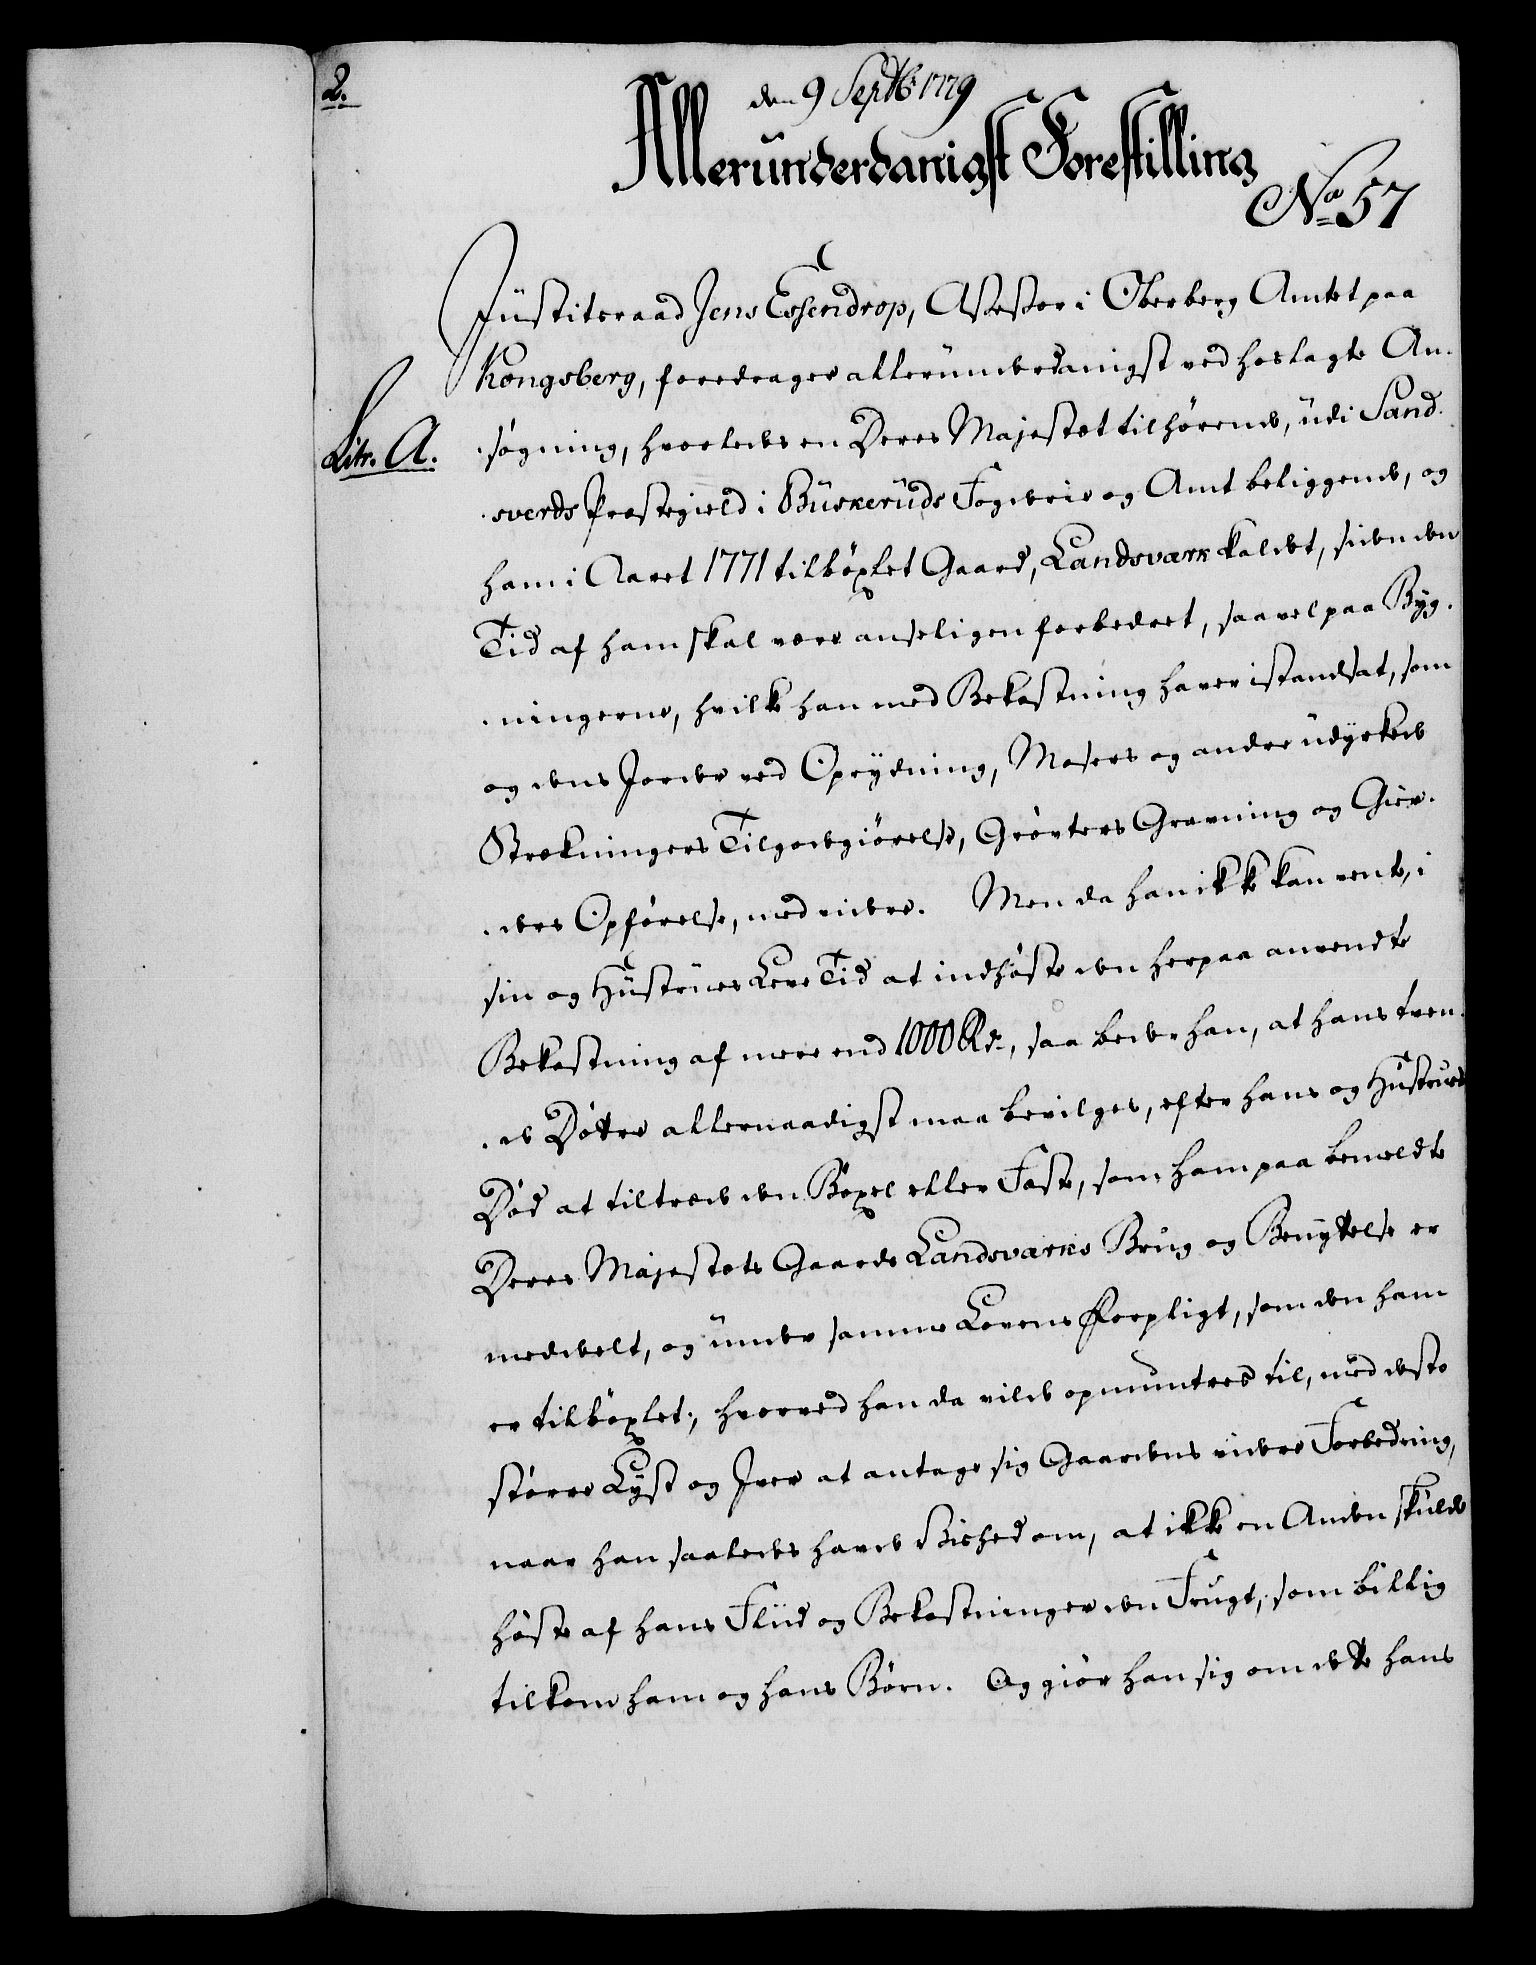 2.
den 9 Septbr 1779
Allerunderdanigst Forestilling
No 57
Justitsraad Jens Essendrop, Assessor i Oberberg Amtet paa
Kongsberg, foredrager allerunderdanigst ved hoslagte An-
Litr. A.
søgning, hvorledes en Deres Majestet tilhørende, udi Sand-
sverds Præstegield i Buskeruds Fogderie og Amt beliggende, og
ham i Aaret 1771 tilbøxlet Gaard, Landsværk kaldet, siden den
Tid af ham skal være anseligen forbedret, saavel paa Byg-
ningerne, hvilke han med Bekostning haver istandsat, som
og dens Jorder ved Oprydning, Mosers og andre udyrkede
Strækningers Tilgodegiørelse, Grøvters Gravning og Gier-
ders Opførelse, med videre. Men da han ikke kan vente, i
sin og Hustrues Leve Tid at indhøste den herpaa anvendte
Bekostning af mere end 1000 Rd., saa beder han, at hans tven-
de Døttre allernaadigst maa bevilges, efter hans og Hustrues
Død at tiltræde den Bøxel eller Fæste, som ham paa bemeldte
Deres Majestets Gaards Landsværks Brug og Benyttelse er
meddeelt, og under samme Lovens Forpligt, som den ham
er tilbøxlet; hvorved han da vilde opmuntres til, med desto
større Lyst og Iver at antage sig Gaardens videre Forbedring,
naar han saaledes havde Vished om, at ikke en Anden skulde
høste af hans Fliid og Bekostninger den Frugt, som billig
tilkom ham og hans Børn. Og giør han sig om dette hans